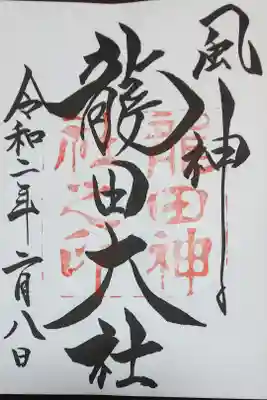 風神
龍田大社
令和二年二月八日
龍田神
社之印